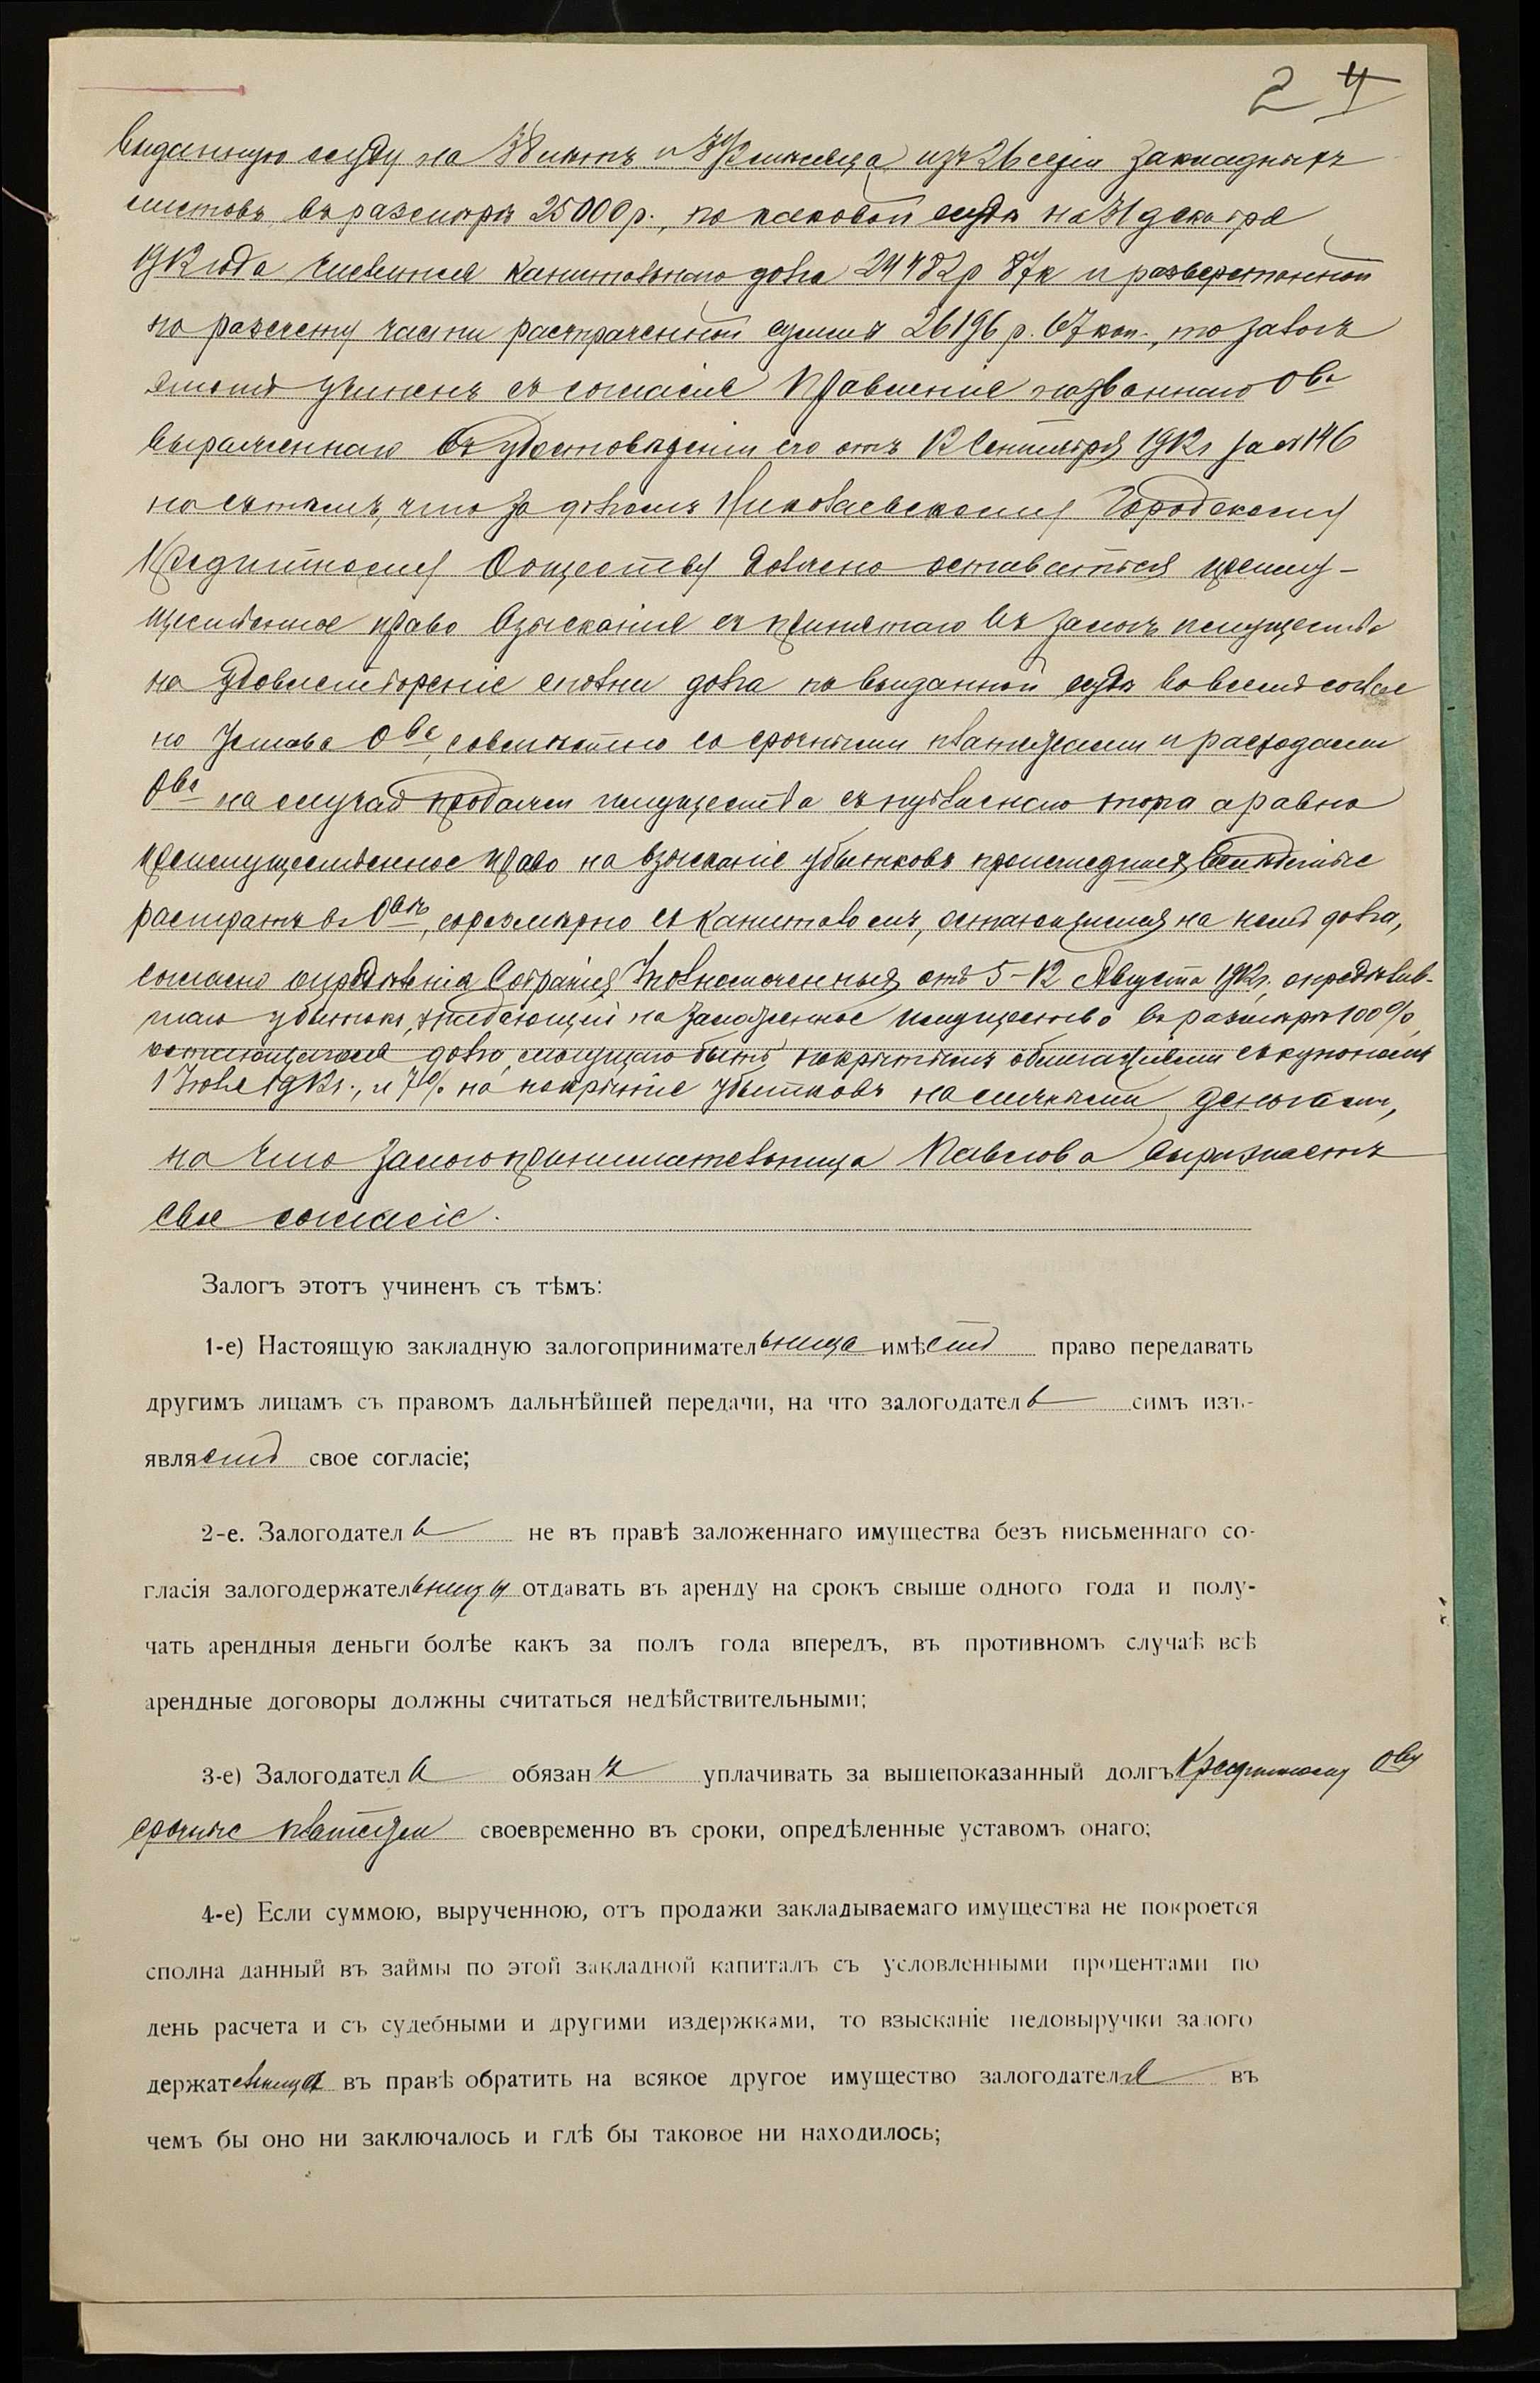 2 4
выданную ссуду на 38 лѣтъ и 3 мѣсяца изъ 26 серіи закладныхъ
листовъ въ размѣрѣ 25000 р., по каковой ссудѣ на 31 декабря
1912 года числится капитальнаго долга 24482 р 87 к и разверстанной
по разсчету части растраченной суммы 26196 р. 67 коп., то залогъ
этотъ учиненъ съ согласія Правленія названнаго Ова
выраженнаго въ удостовѣреніи его отъ 12 Сентября 1912 г за № 146
но съ тѣмъ, что за долгомъ Николаевскому Городскому
Кредитному Обществу должно оставаться преиму-
щественное право взысканія съ принятаго въ залогъ имущества
на удовлетвореніе сполна долга по выданной ссудѣ во всемъ соглас
но Устава Ова, совмѣстно со срочными платежами и расходами
Ова на случай продажи имущества съ публичнаго торга а равно
преимущественное право на взысканіе убытковъ происшедшихъ вслѣдствіе
растратъ въ Овѣ, соразмѣрно съ капиталомъ, остающимся на немъ долга,
согласно опредѣленія Собранія Уполномоченныхъ отъ 5-12 Августа 1912 г., опредѣлив-
шаго убытокъ, упадающій на заложенное имущество въ размѣрѣ 100%
остающагося долга, могущаго быть покрытымъ облигаціями съ купономъ
1 Іюля 1912 г., и 7% на покрытіе убытковъ наличными деньгами,
на что залогопринимательница Павлова выражаетъ
свое согласіе.
Залогъ этотъ учиненъ съ тѣмъ:
1-е) Настоящую закладную залогопринимательница имѣетъ право передавать
другимъ лицамъ съ правомъ дальнѣйшей передачи, на что залогодатель симъ изъ-
являетъ свое согласіе;
2-е. Залогодатель не въ правѣ заложеннаго имущества безъ письменнаго со-
гласія залогодержательницы отдавать въ аренду на срокъ свыше одного года и полу-
чать арендныя деньги болѣе какъ за полъ года впередъ, въ противномъ случаѣ всѣ
арендные договоры должны считаться недѣйствительными;
3-е) Залогодатель обязанъ уплачивать за вышепоказанный долгъ Кредитному Ову
срочные платежи своевременно въ сроки, опредѣленные уставомъ онаго;
4-е) Если суммою, вырученною, отъ продажи закладываемаго имущества не покроется
сполна данный въ займы по этой закладной капиталъ съ условленными процентами по
день расчета и съ судебными и другими издержками, то взысканіе недовыручки залого
держательница въ правѣ обратить на всякое другое имущество залогодателя въ
чемъ бы оно ни заключалось и гдѣ бы таковое ни находилось;